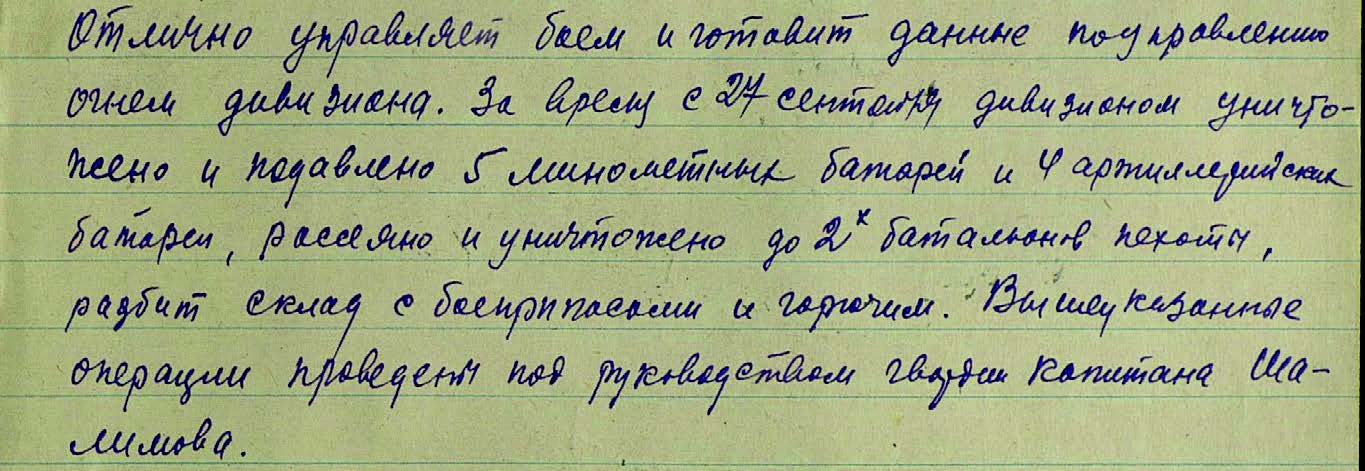 Отлично управляет боем и готовит данные по управлению
огнем дивизиона. За время с 27 сентября дивизионом уничто-
жено и подавлено 5 минометных батарей и 4 артиллерийских
батареи, рассеяно и уничтожено до 2х батальонов пехоты,
разбит склад с боеприпасами и горючим. Вышеуказанные
операции проведены под руководством гвардии капитана Ша-
лимова.